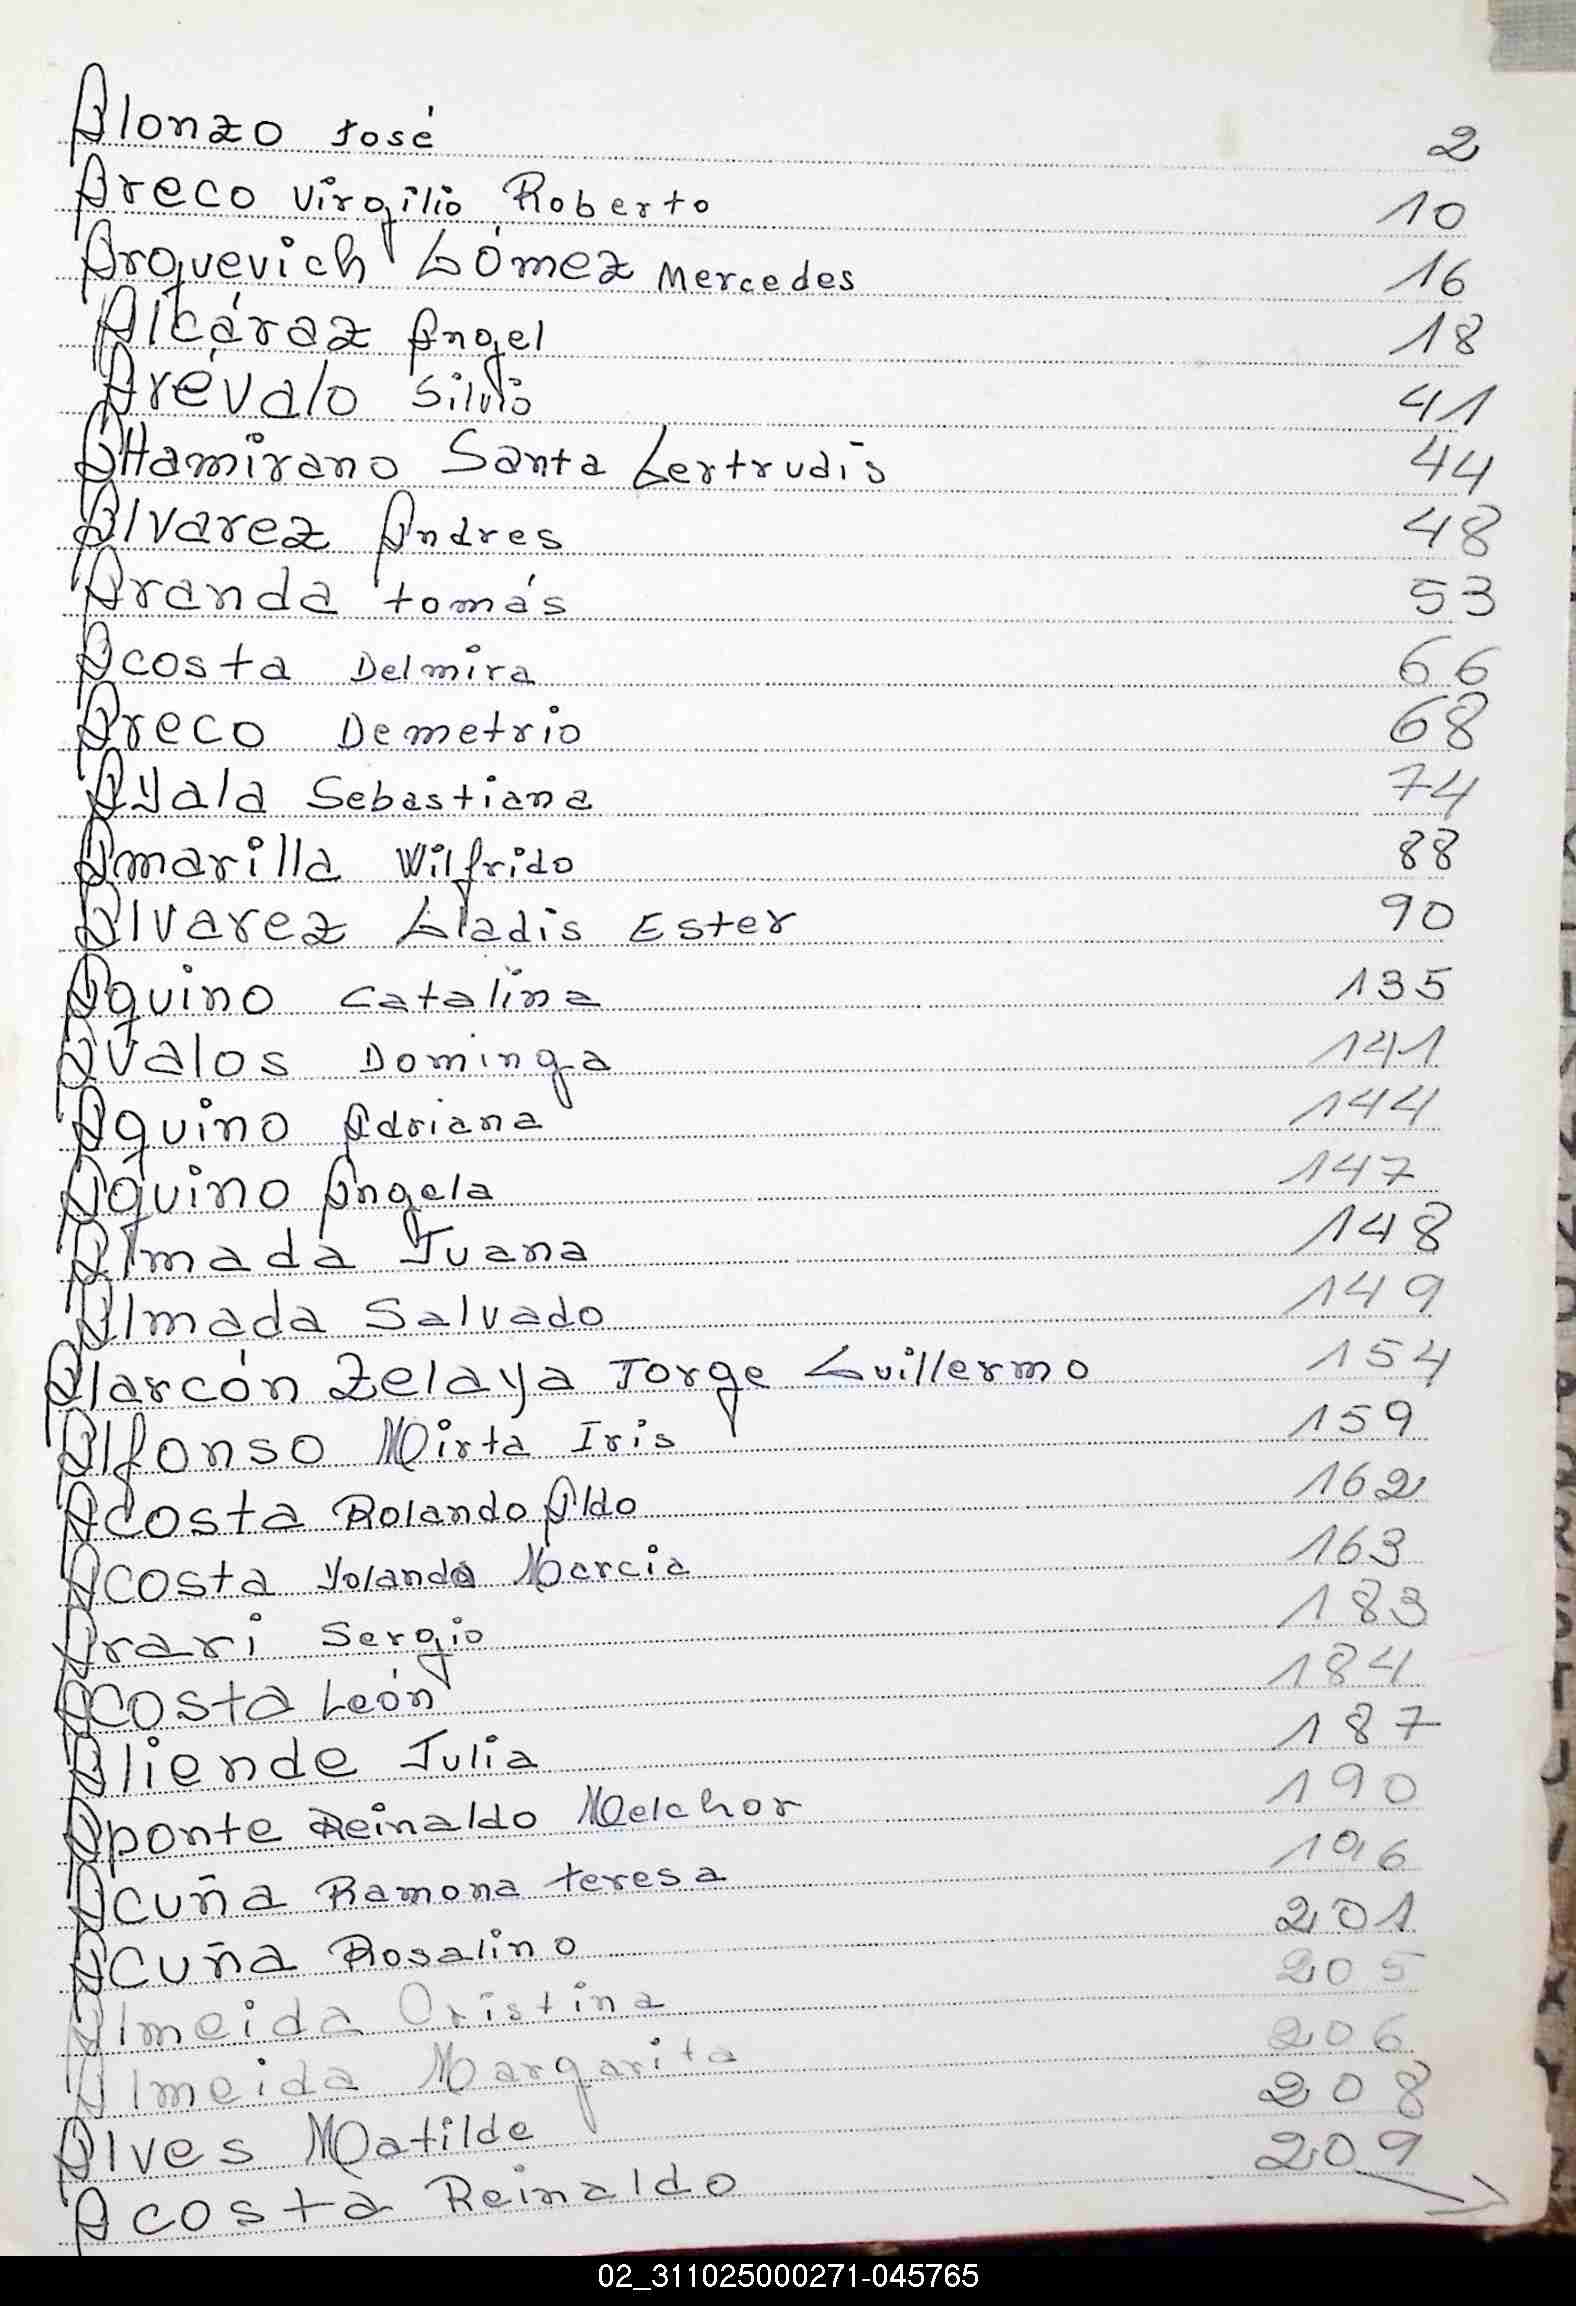 Alonzo José 2
Areco Virgilio Roberto 10
Arquevich Gómez Mercedes 16
Alcáraz Angel 18
Arévalo Silvio 41
Altamirano Santa Gertrudis 44
Alvarez Andres 48
Aranda tomás 53
Acosta Delmira 66
Areco Demetrio 68
Ayala Sebastiana 74
Amarilla Wilfrido 88
Alvarez Gladis Ester 90
Aquino Catalina 135
Avalos Dominga 141
Aquino Adriana 144
Aquino Angela 147
Almada Juana 148
Almada Salvado 149
Alarcón Zelaya Jorge Guillermo 154
Alfonso Mirta Iris 159
Acosta Rolando Aldo 162
Acosta Yolanda Marcia 163
Arari Sergio 183
Acosta León 184
Aliende Julia 187
Aponte Reinaldo Melchor 190
Acuña Ramona teresa 196
Acuña Rosalino 201
Almeida Cristina 205
Almeida Margarita 206
Alves Matilde 208
Acosta Reinaldo 209
02_311025000271-045765